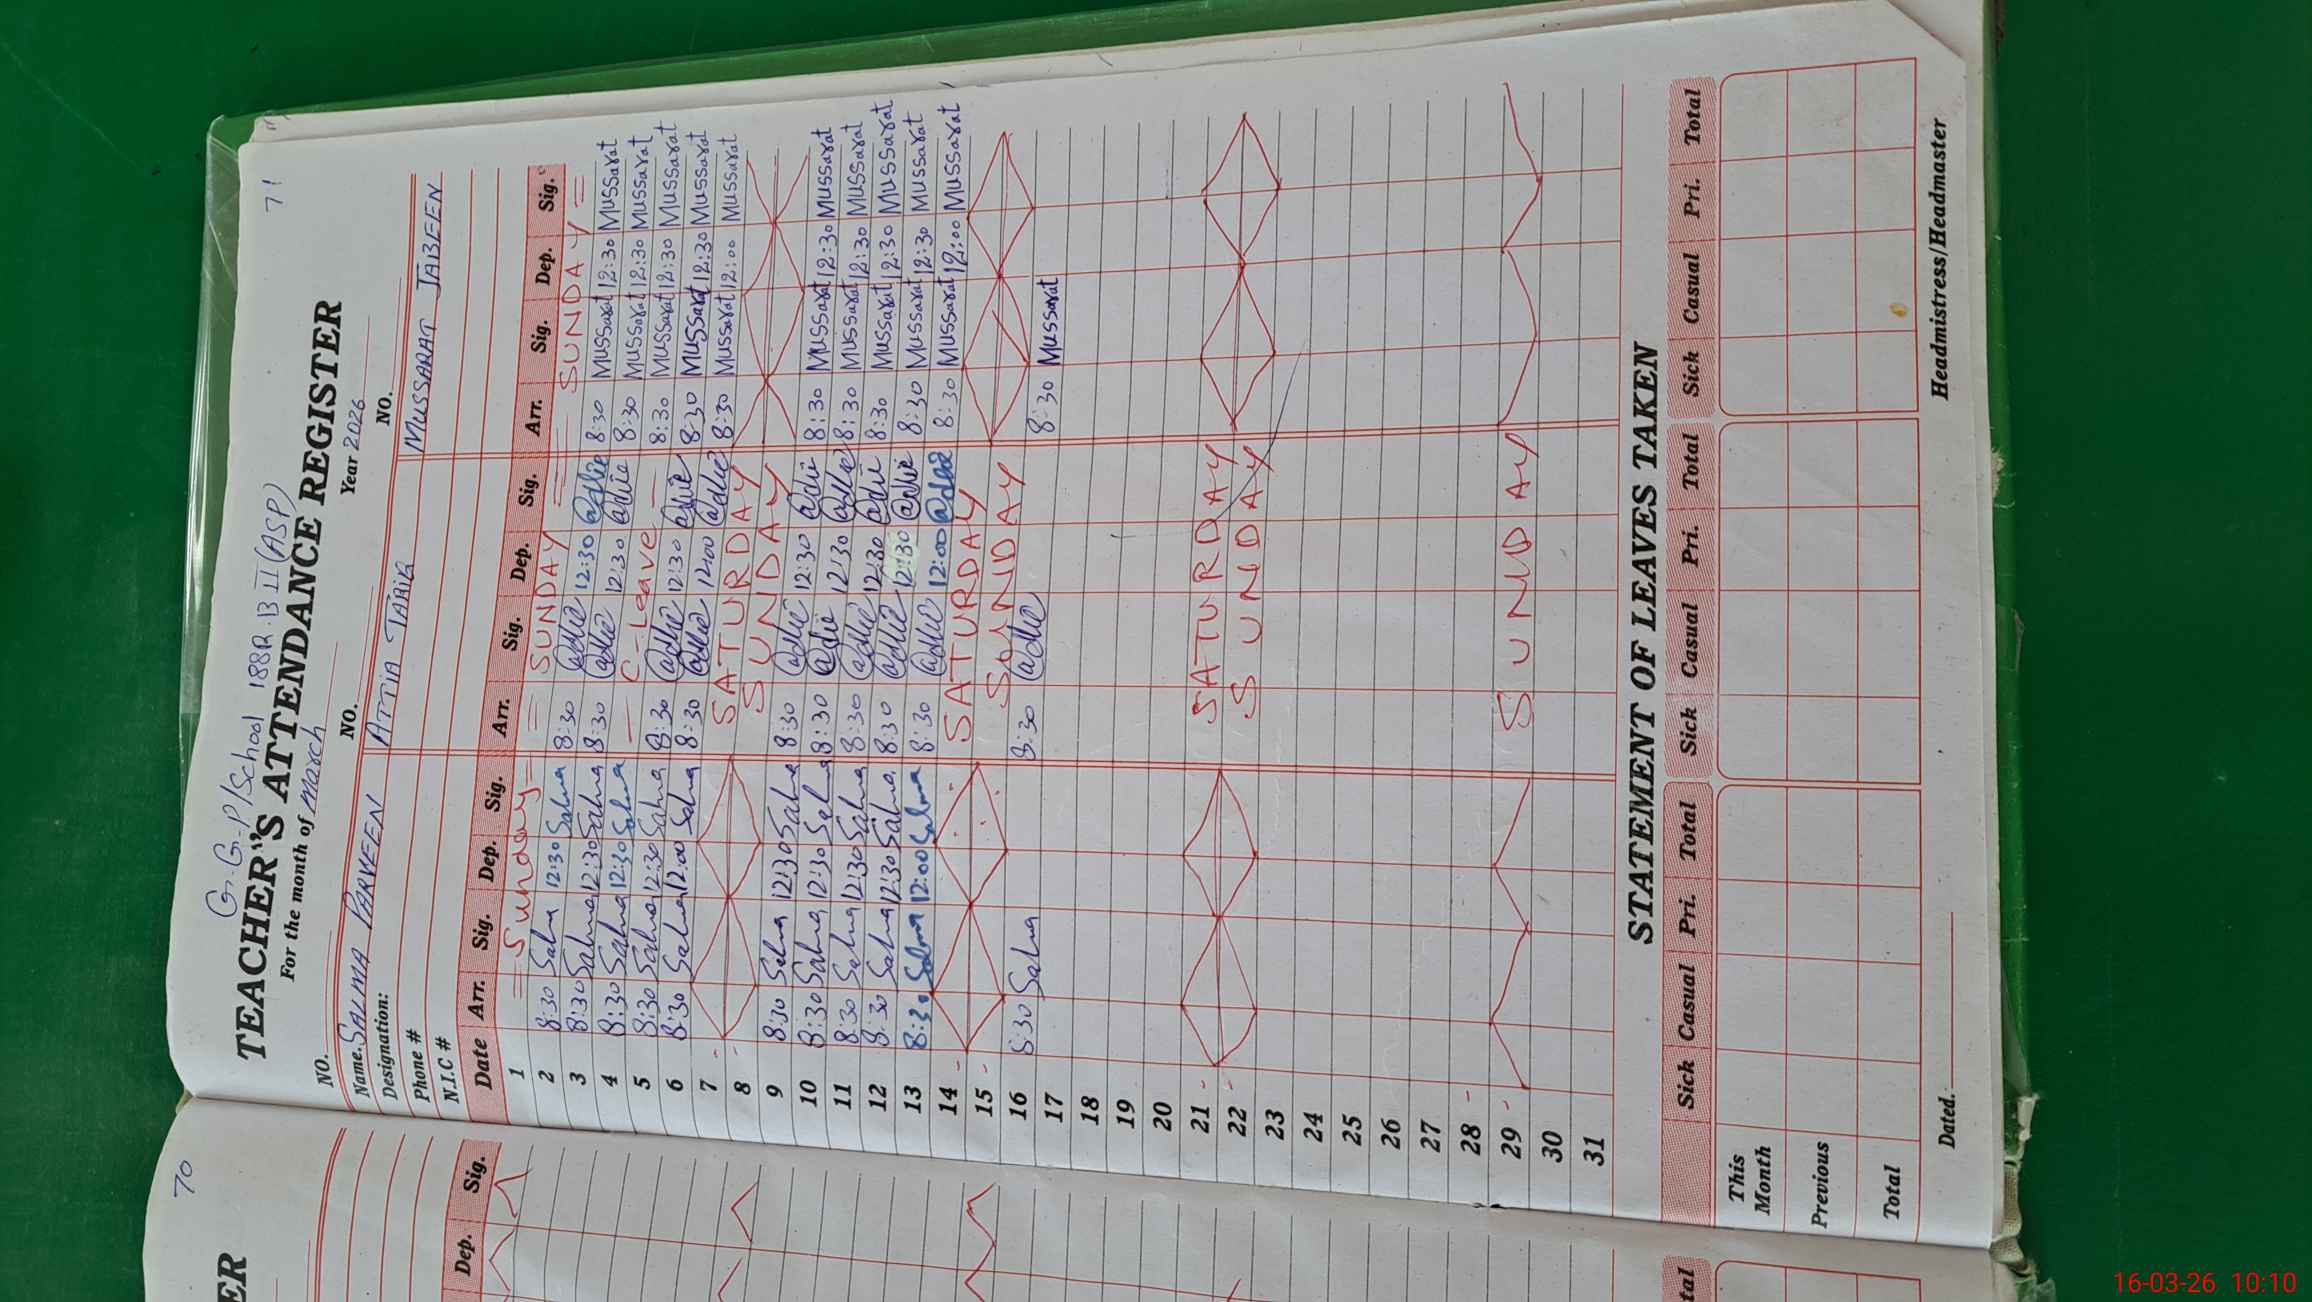 71
G.G.P/School 188R.B II (ASP)
TEACHER'S ATTENDANCE REGISTER
For the month of March Year 2026
NO. NO. NO.
Name. SALMA PARVEEN ATTIA TARIQ MUSSARAT JABEEN
Designation:
Phone #
N.I.C #
Date Arr. Sig. Dep. Sig. Arr. Sig. Dep. Sig. Arr. Sig. Dep. Sig.
1 Sunday SUNDAY SUNDAY
2 8:30 Salma 12:30 Salma 8:30 12:30 8:30 Mussarat 12:30 Mussarat
3 8:30 Salma 12:30 Salma 8:30 12:30 8:30 Mussarat 12:30 Mussarat
4 8:30 Salma 12:30 Salma C-Leave 8:30 Mussarat 12:30 Mussarat
5 8:30 Salma 12:30 Salma 8:30 12:30 8:30 Mussarat 12:30 Mussarat
6 8:30 Salma 12:00 Salma 8:30 12:00 8:30 Mussarat 12:00 Mussarat
7 SATURDAY
8 SUNDAY
9 8:30 Salma 12:30 Salma 8:30 12:30 8:30 Mussarat 12:30 Mussarat
10 8:30 Salma 12:30 Salma 8:30 12:30 8:30 Mussarat 12:30 Mussarat
11 8:30 Salma 12:30 Salma 8:30 12:30 8:30 Mussarat 12:30 Mussarat
12 8:30 Salma 12:30 Salma 8:30 12:30 8:30 Mussarat 12:30 Mussarat
13 8:30 Salma 12:00 Salma 8:30 12:00 8:30 Mussarat 12:00 Mussarat
14 SATURDAY
15 SUNDAY
16 8:30 Salma 8:30 8:30 Mussarat
17
18
19
20
21 SATURDAY
22 SUNDAY
23
24
25
26
27
28
29 SUNDAY
30
31
STATEMENT OF LEAVES TAKEN
Sick Casual Pri. Total Sick Casual Pri. Total Sick Casual Pri. Total
This Month
Previous
Total
Dated: Headmistress/Headmaster
70
ER
Dep. Sig.
tal
16-03-26 10:10